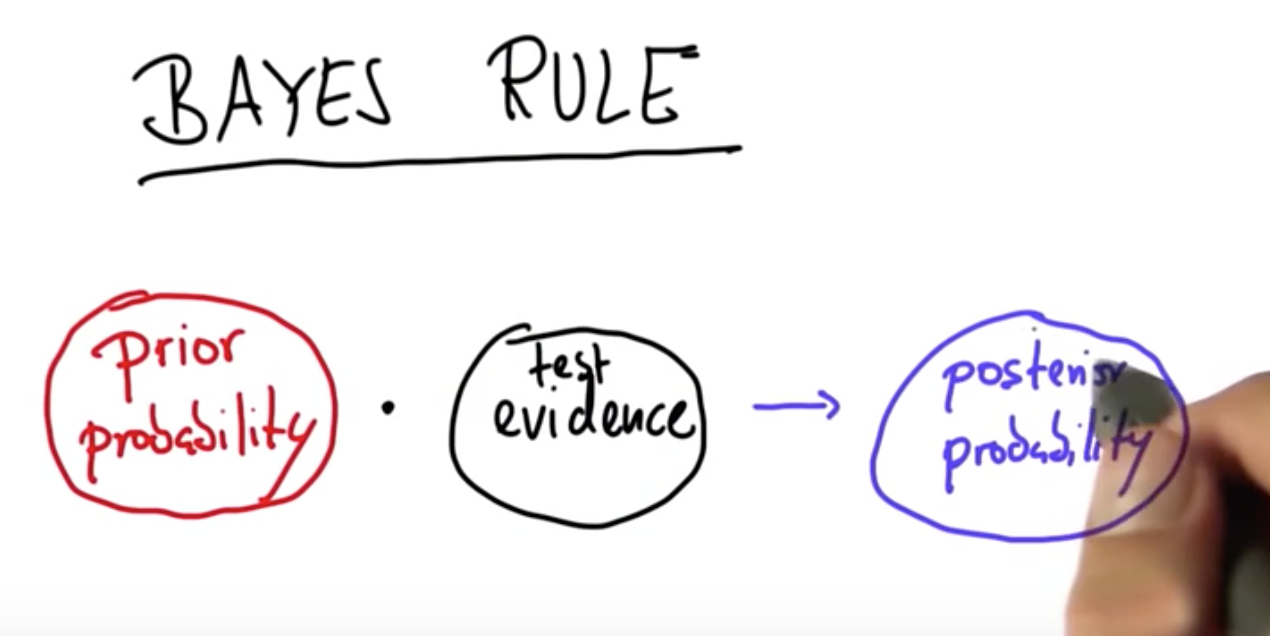 BAYES RULE
prior
probability
·
test
evidence
→
posterior
probability